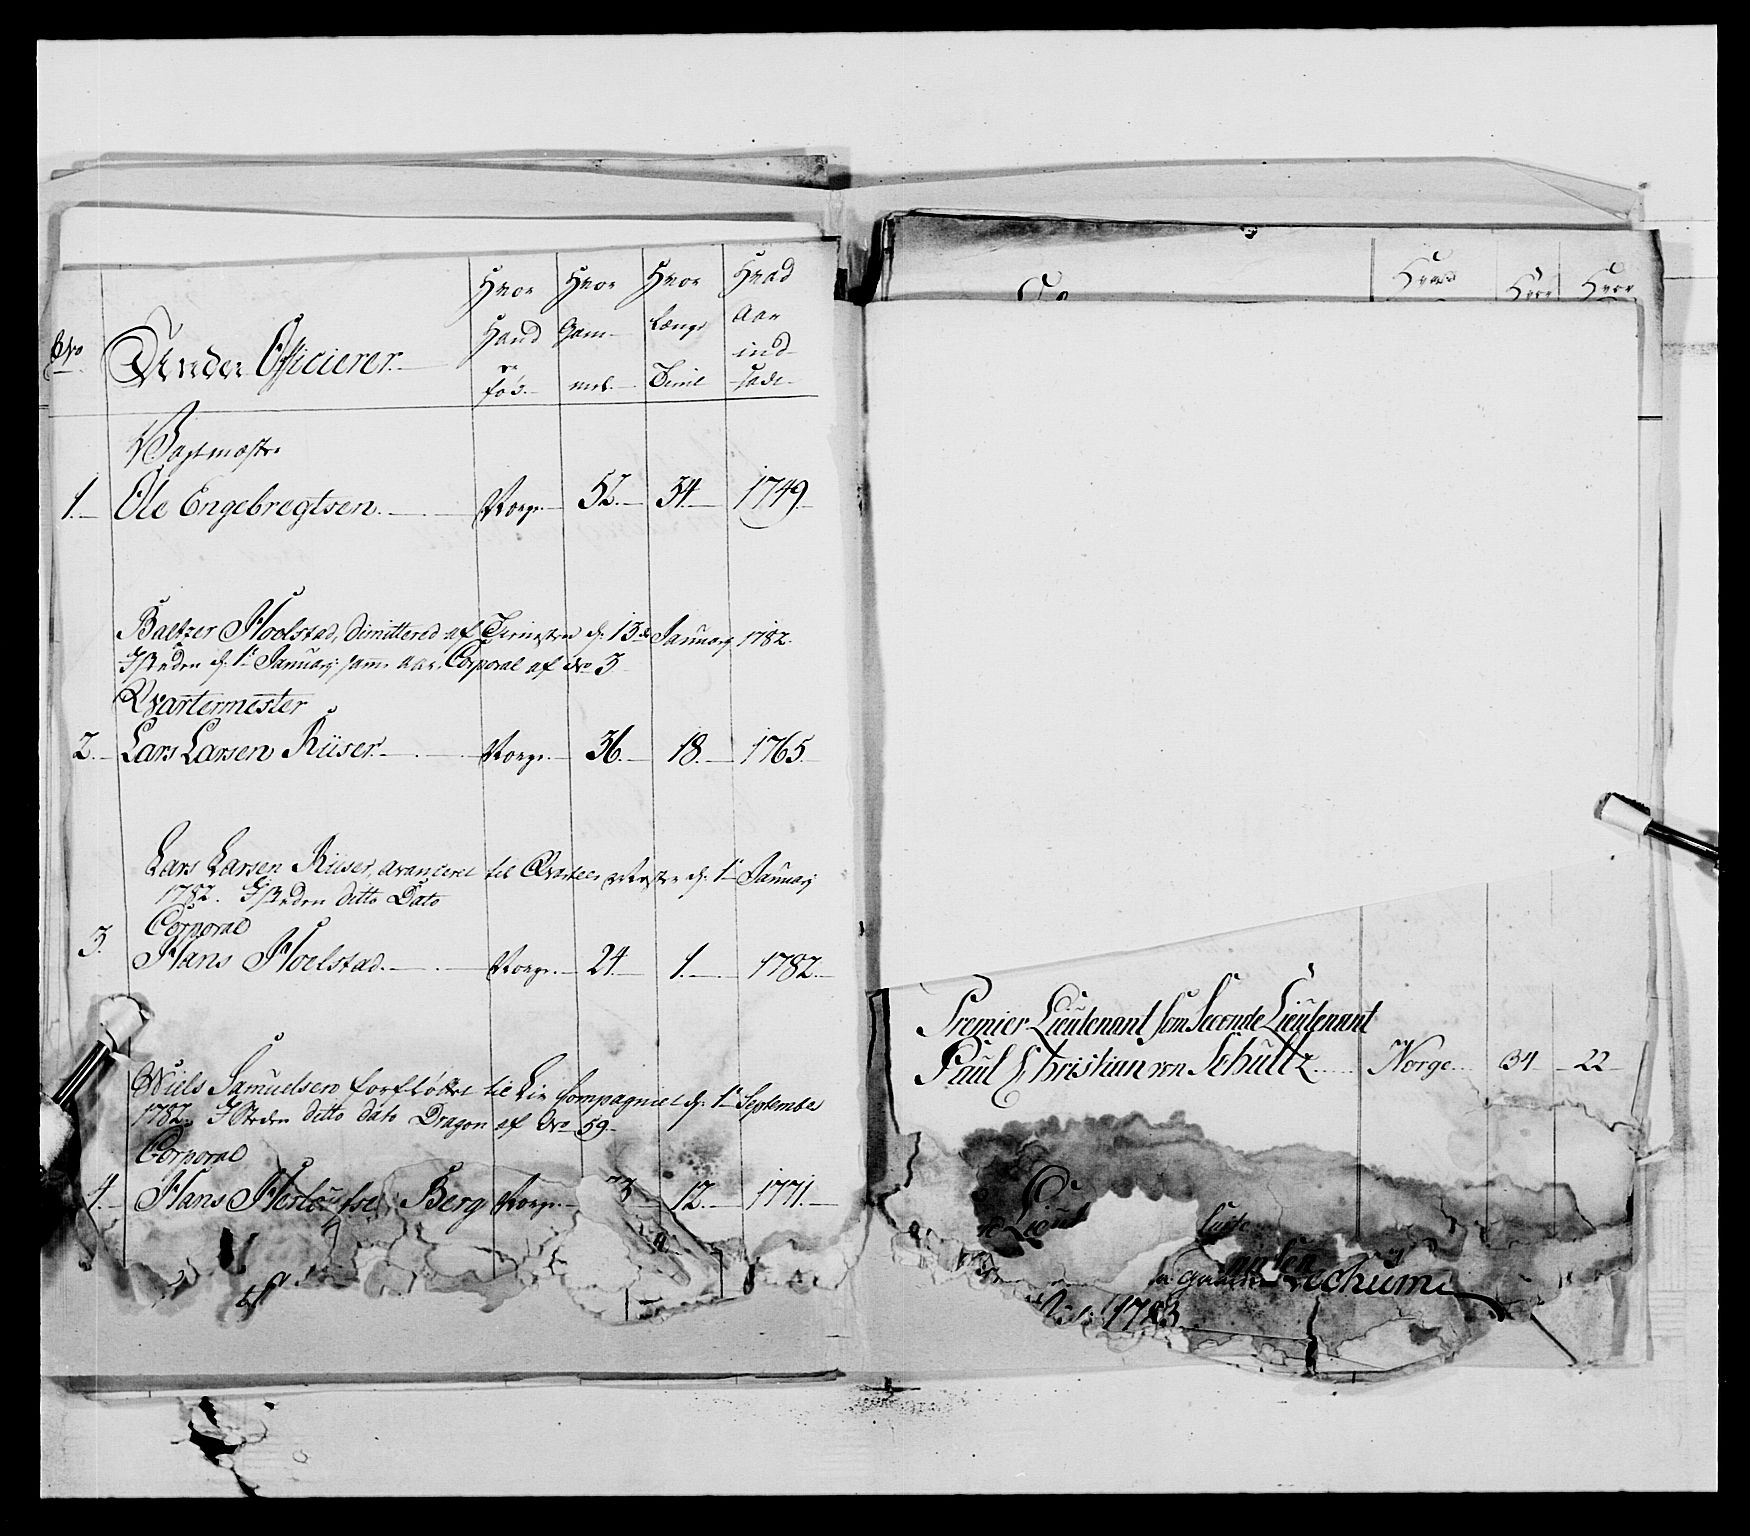 No Under Officierer Hvor Land er fød Hvor Gammel Hvor Længe Tient Hvad Aar indsadt
Vagtmester
1. Ole Engebregtsen Norge 52 34 1749
Baltzer Hoolstad, dimittered af Tienesten d: 13de January 1782.
I Steden d: 1te January samme Aar, Corporal af No 3
Qvartermester
2. Lars Larsen Rüser Norge 36 18 1765
Lars Larsen Rüser, avanceret til Qvarteer Mester d: 1te January
1782. I Steden ditto Dato
Corporal
3. Hans Hoelstad Norge 24 1 1782
Niels Samuelsen forfløttet til Liv Compagniet d: 1te September
1782. I Steden ditto dato Dragon af No 59
Corporal
4. Hans Berg Norge 12 1771
Hvad Hvor Hvor
Premier Lieutenant som Seconde Lieutenant
Paul Christian von Schultz Norge 34 22
Lieut
Suite
1783